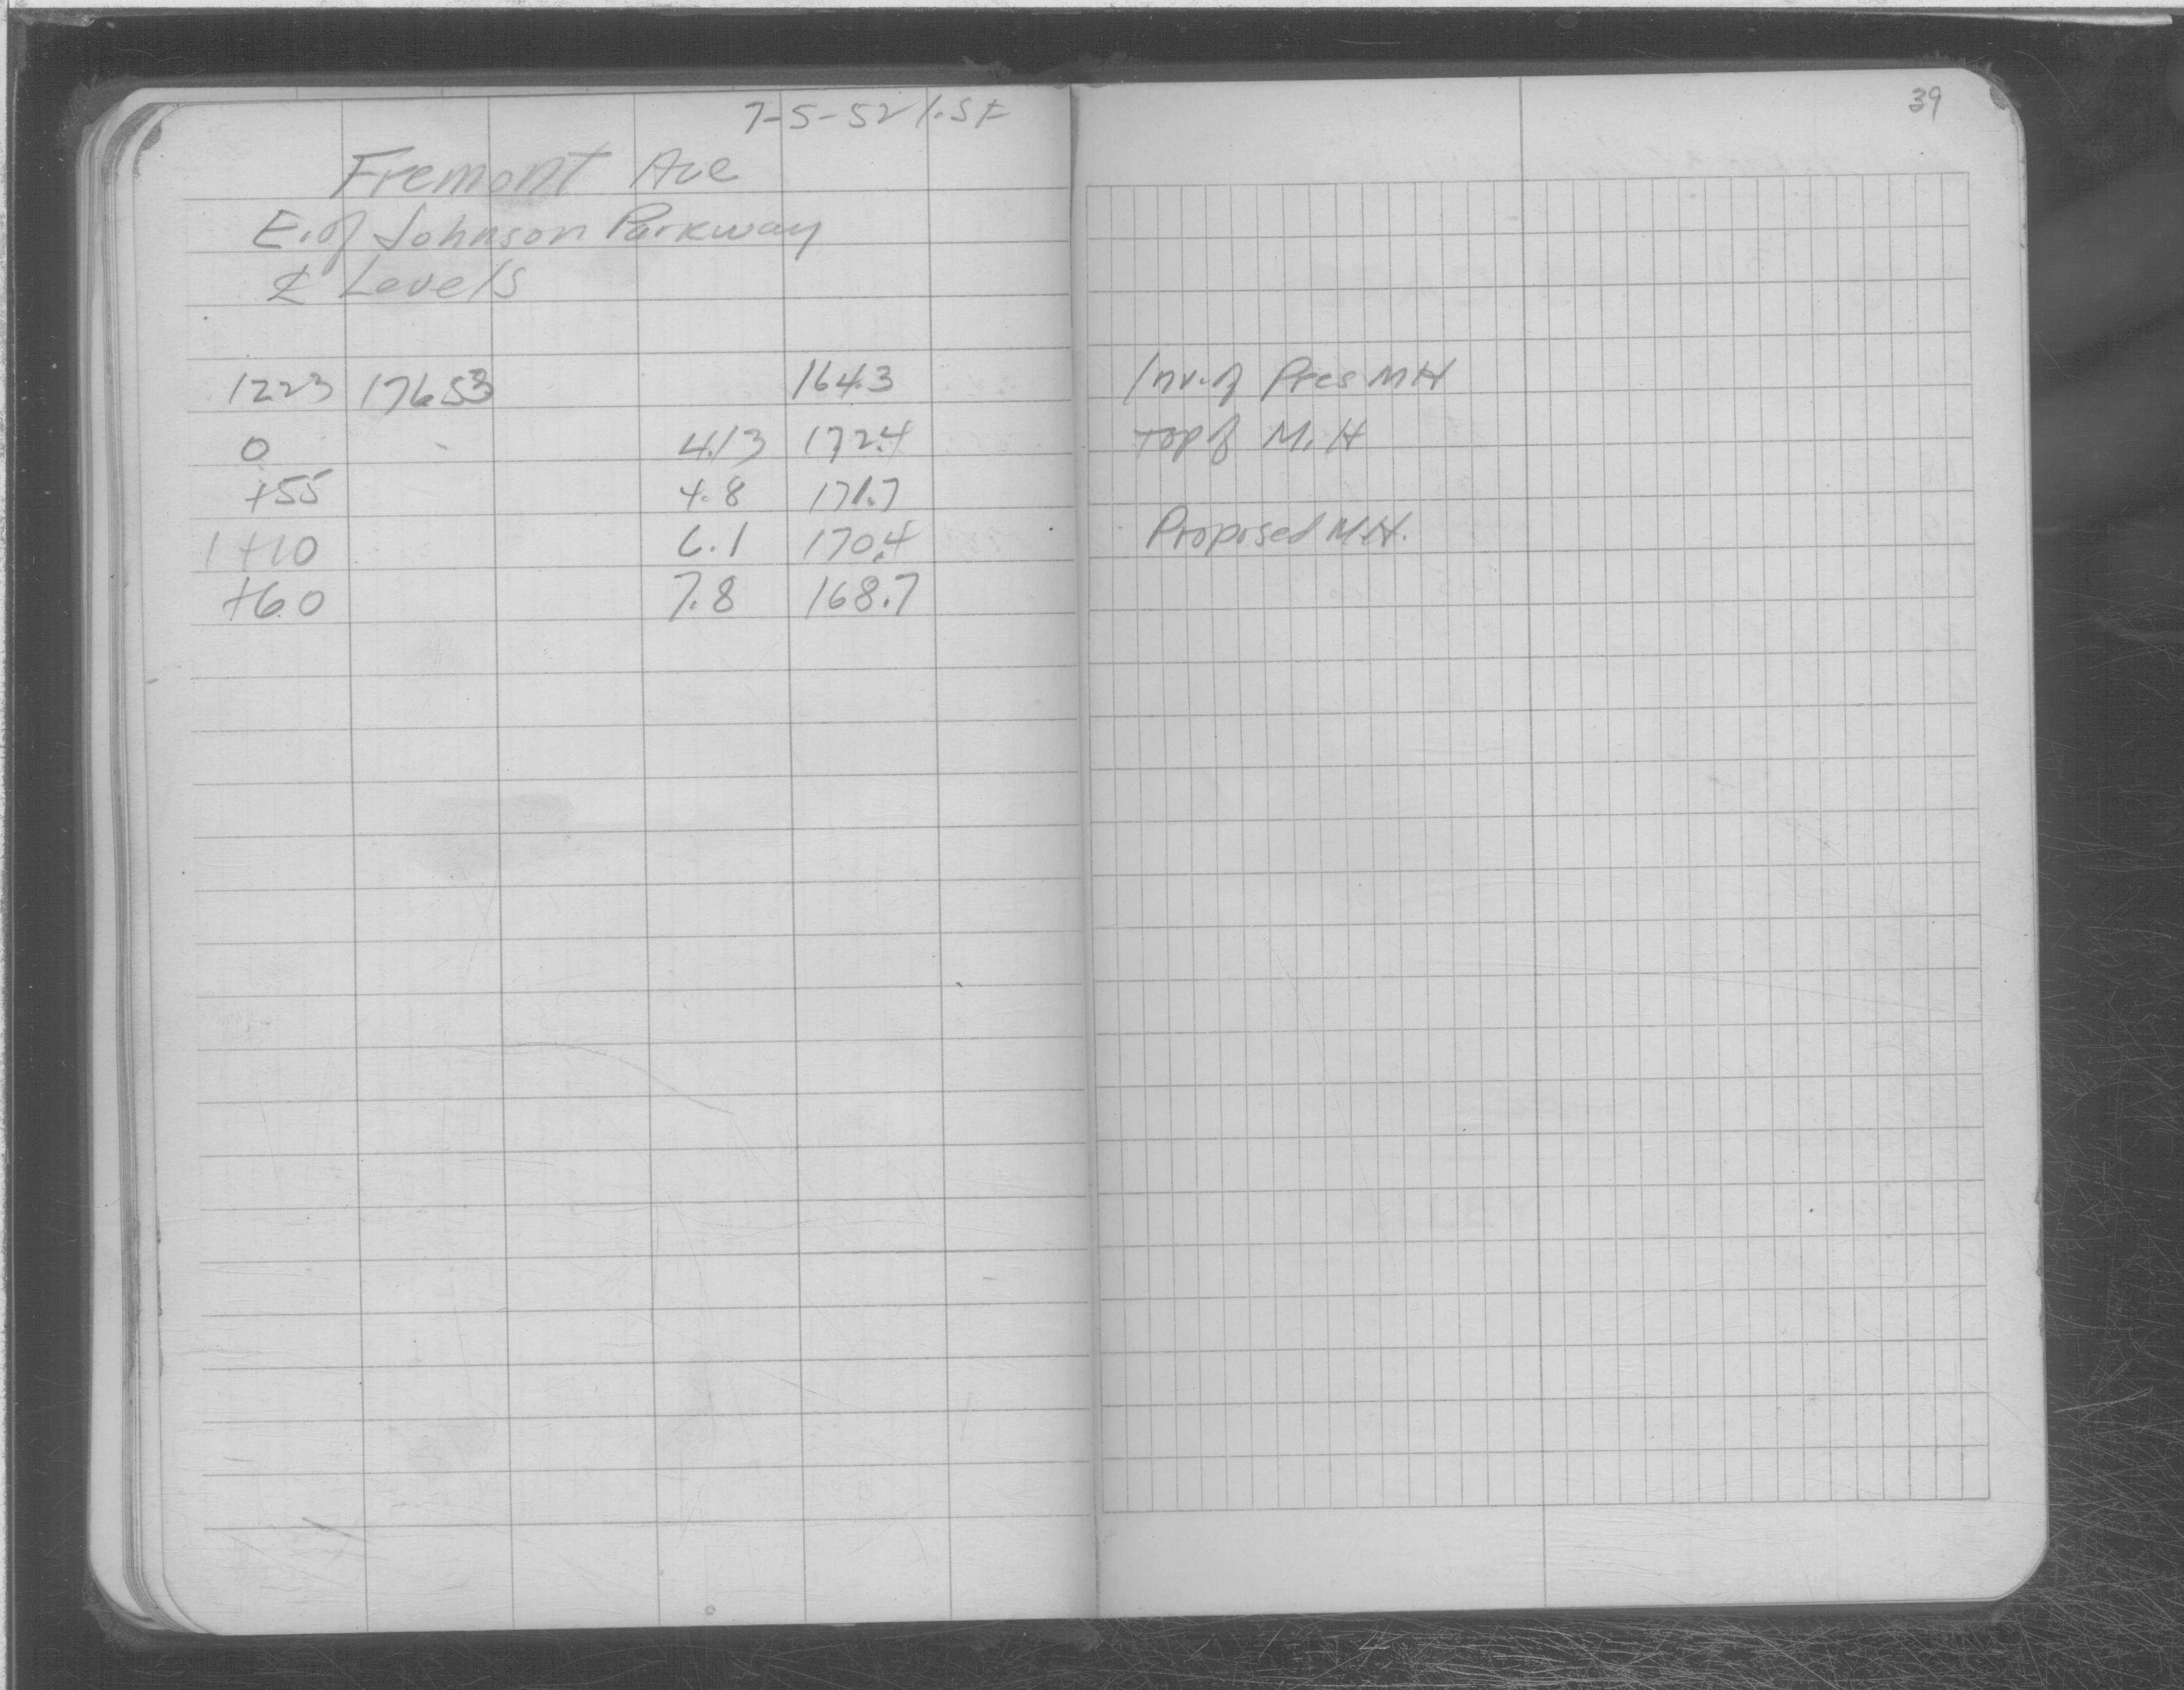 7-5-52
39
Fremont Ave
E. of Johnson Parkway
℄ Levels
1223 176.53 164.3 Inv. of Pres MH
0 4.13 172.4 Top of M.H
+55 4.8 171.7
1+10 6.1 170.4 Proposed M.H.
+60 7.8 168.7